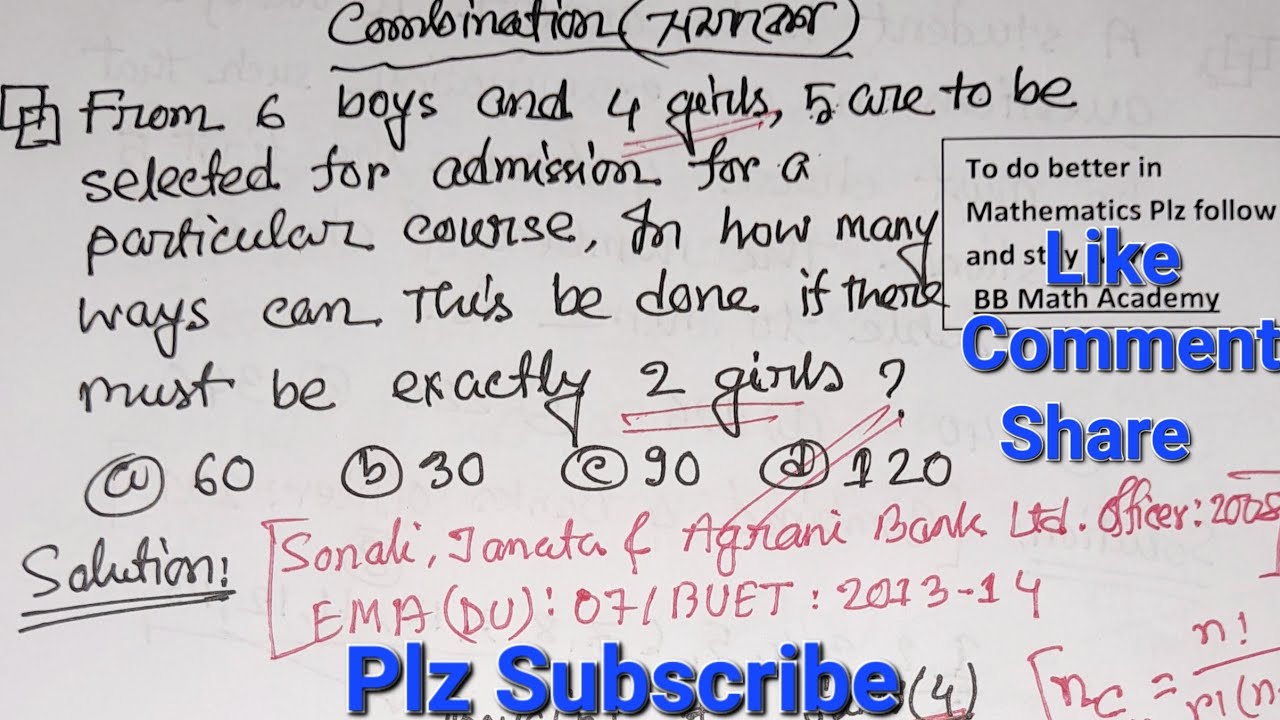 Combination (সমাবেশ)
From 6 boys and 4 girls, 5 are to be
selected for admission for a
particular course, In how many
ways can This be done if there
must be exactly 2 girls ?
(a) 60 (b) 30 (c) 90 (d) 120
To do better in
Mathematics Plz follow
and st
BB Math Academy
Like
Comment
Share
Solution:
[Sonali, Janata & Agrani Bank Ltd. Officer: 2008
EMBA(DU): 07/BUET: 2013-14
Plz Subscribe
(4)
[nc = n!
r!(n